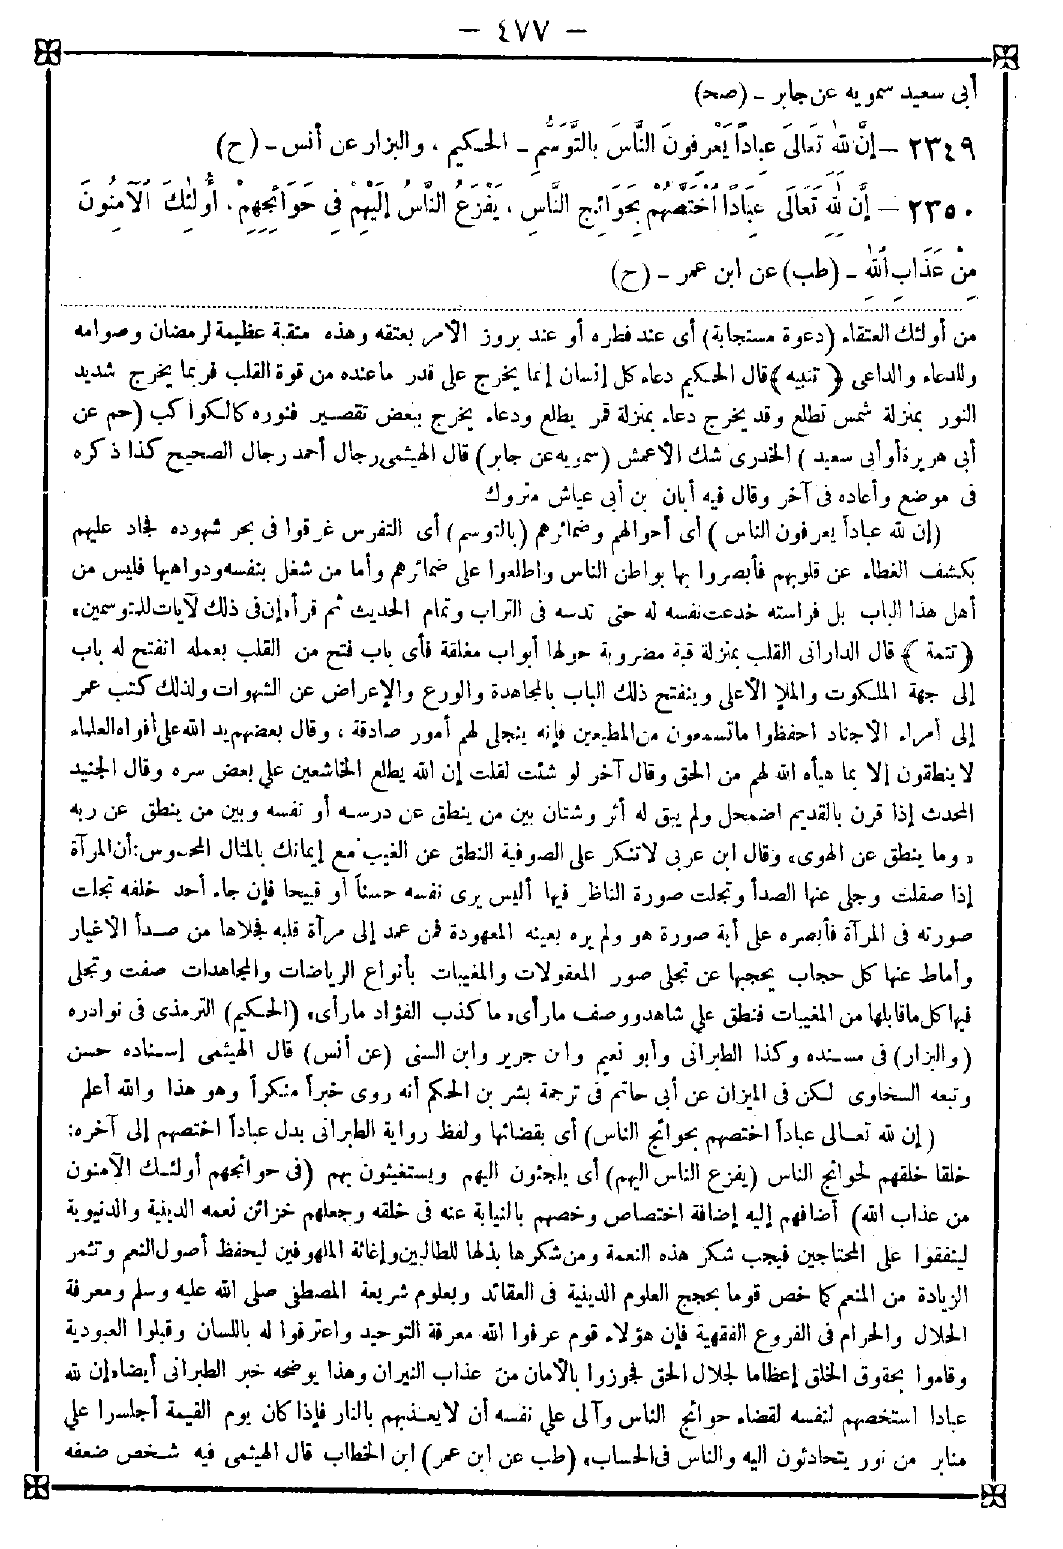 — ٤٧٧ —
أبى سعيد سمويه عن جابر - (صحـ)
٢٣٤٩ - إِنَّ لِلهِ تَعَالَى عِبَاداً يَعْرِفُونَ النَّاسَ بِالتَّوَسُّمِ - الحـكيم ، والبزار عن أنس - (ح)
٢٣٥٠ - إِنَّ لِلهِ تَعَالَى عِبَادًا اخْتَصَّهُمْ بِحَوَائِجِ النَّاسِ ، يَفْزَعُ النَّاسُ إِلَيْهِمْ فِى حَوَائِجِهِمْ ، أُولٰئِكَ الْآمِنُونَ
مِنْ عَذَابِ اللهِ - (طب) عن ابن عمر - (ح)
من أولئك العتقاء (دعوة مستجابة) أى عند فطره أو عند بروز الأمر بعتقه وهذه منقبة عظيمة لرمضان وصوامه
وللدعاء والداعى ﴿ تنبيه ﴾ قال الحكيم دعاء كل إنسان إنما يخرج على قدر ماعنده من قوة القلب فربما يخرج شديد
النور بمنزلة شمس تطلع وقد يخرج دعاء بمنزلة قمر يطلع ودعاء يخرج ببعض تقصير فنوره كالكواكب (حم عن
أبى هريرة أو أبى سعيد ) الخدرى شك الأعمش (سمويه عن جابر) قال الهيثمى رجال أحمد رجال الصحيح كذا ذكره
فى موضع وأعاده فى آخر وقال فيه أبان بن أبى عياش متروك
(إن لله عباداً يعرفون الناس ) أى أحوالهم وضمائرهم (بالتوسم) أى التفرس غرقوا فى بحر شهوده فجاد عليهم
بكشف الغطاء عن قلوبهم فأبصروا بها بواطن الناس واطلعوا على ضمائرهم وأما من شغل بنفسه ودواهيها فليس من
أهل هذا الباب بل فراسته خدعت نفسه له حتى تدسه فى التراب وتمام الحديث ثم قرأ «إن فى ذلك لآيات للمتوسمين»
﴿ تتمة ﴾ قال الدارانى القلب بمنزلة قبة مضروبة حولها أبواب مغلقة فأى باب فتح من القلب بعمله انفتح له باب
إلى جهة الملكوت والملإ الأعلى وينفتح ذلك الباب بالمجاهدة والورع والإعراض عن الشهوات ولذلك كتب عمر
إلى أمراء الأجناد احفظوا ما تسمعون من المطيعين فإنه ينجلى لهم أمور صادقة ، وقال بعضهم يد الله على أفواه العلماء
لا ينطقون إلا بما هيأه الله لهم من الحق وقال آخر لو شئت لقلت إن الله يطلع الخاشعين على بعض سره وقال الجنيد
المحدث إذا قرن بالقديم اضمحل ولم يبق له أثر وشتان بين من ينطق عن درسه أو نفسه وبين من ينطق عن ربه
« وما ينطق عن الهوى» وقال ابن عربى لا تنكر على الصوفية النطق عن الغيب مع إيمانك بالمثال المحسوس: أن المرآة
إذا صقلت وجلى عنها الصدأ وتجلت صورة الناظر فيها أليس يرى نفسه حسناً أو قبيحا فإن جاء أحد خلفه تجلت
صورته فى المرآة فأبصره على أية صورة هو ولم يره بعينه المعهودة فمن عمد إلى مرآة قلبه فجلاها من صدأ الأغيار
وأماط عنها كل حجاب يحجبها عن تجلى صور المعقولات والمغيبات بأنواع الرياضات والمجاهدات صفت وتجلى
فيها كل ما قابلها من المغيبات فنطق على شاهد ووصف مارأى «ما كذب الفؤاد مارأى» (الحكيم) الترمذى فى نوادره
( والبزار) فى مسنده وكذا الطبرانى وأبو نعيم وابن جرير وابن السنى (عن أنس) قال الهيثمى إسناده حسن
وتبعه السخاوى لكن فى الميزان عن أبى حاتم فى ترجمة بشر بن الحكم أنه روى خبراً منكراً وهو هذا والله أعلم
( إن لله تعالى عباداً اختصهم بحوائج الناس) أى بقضائها ولفظ رواية الطبرانى بدل عباداً اختصهم إلى آخره:
خلقا خلقهم لحوائج الناس (يفزع الناس اليهم) أى يلجئون اليهم ويستغيثون بهم (فى حوائجهم أولئك الآمنون
من عذاب الله) أضافهم إليه إضافة اختصاص وخصهم بالنيابة عنه فى خلقه وجعلهم خزائن نعمه الدينية والدنيوية
لينفقوا على المحتاجين فيجب شكر هذه النعمة ومن شكرها بذلها للطالبين وإغاثة الملهوفين ليحفظ أصول النعم وتثمر
الزيادة من المنعم كما خص قوما بحجج العلوم الدينية فى العقائد وبعلوم شريعة المصطفى صلى الله عليه وسلم ومعرفة
الحلال والحرام فى الفروع الفقهية فإن هؤلاء قوم عرفوا الله معرفة التوحيد واعترفوا له باللسان وقبلوا العبودية
وقاموا بحقوق الخلق إعظاما لجلال الحق فجوزوا بالأمان من عذاب النيران وهذا يوضحه خبر الطبرانى أيضا «إن لله
عبادا استخصهم لنفسه لقضاء حوائج الناس وآلى على نفسه أن لا يعذبهم بالنار فإذا كان يوم القيمة أجلسوا على
منابر من نور يتحادثون اليه والناس فى الحساب» (طب عن ابن عمر) ابن الخطاب قال الهيثمى فيه شخص ضعفه